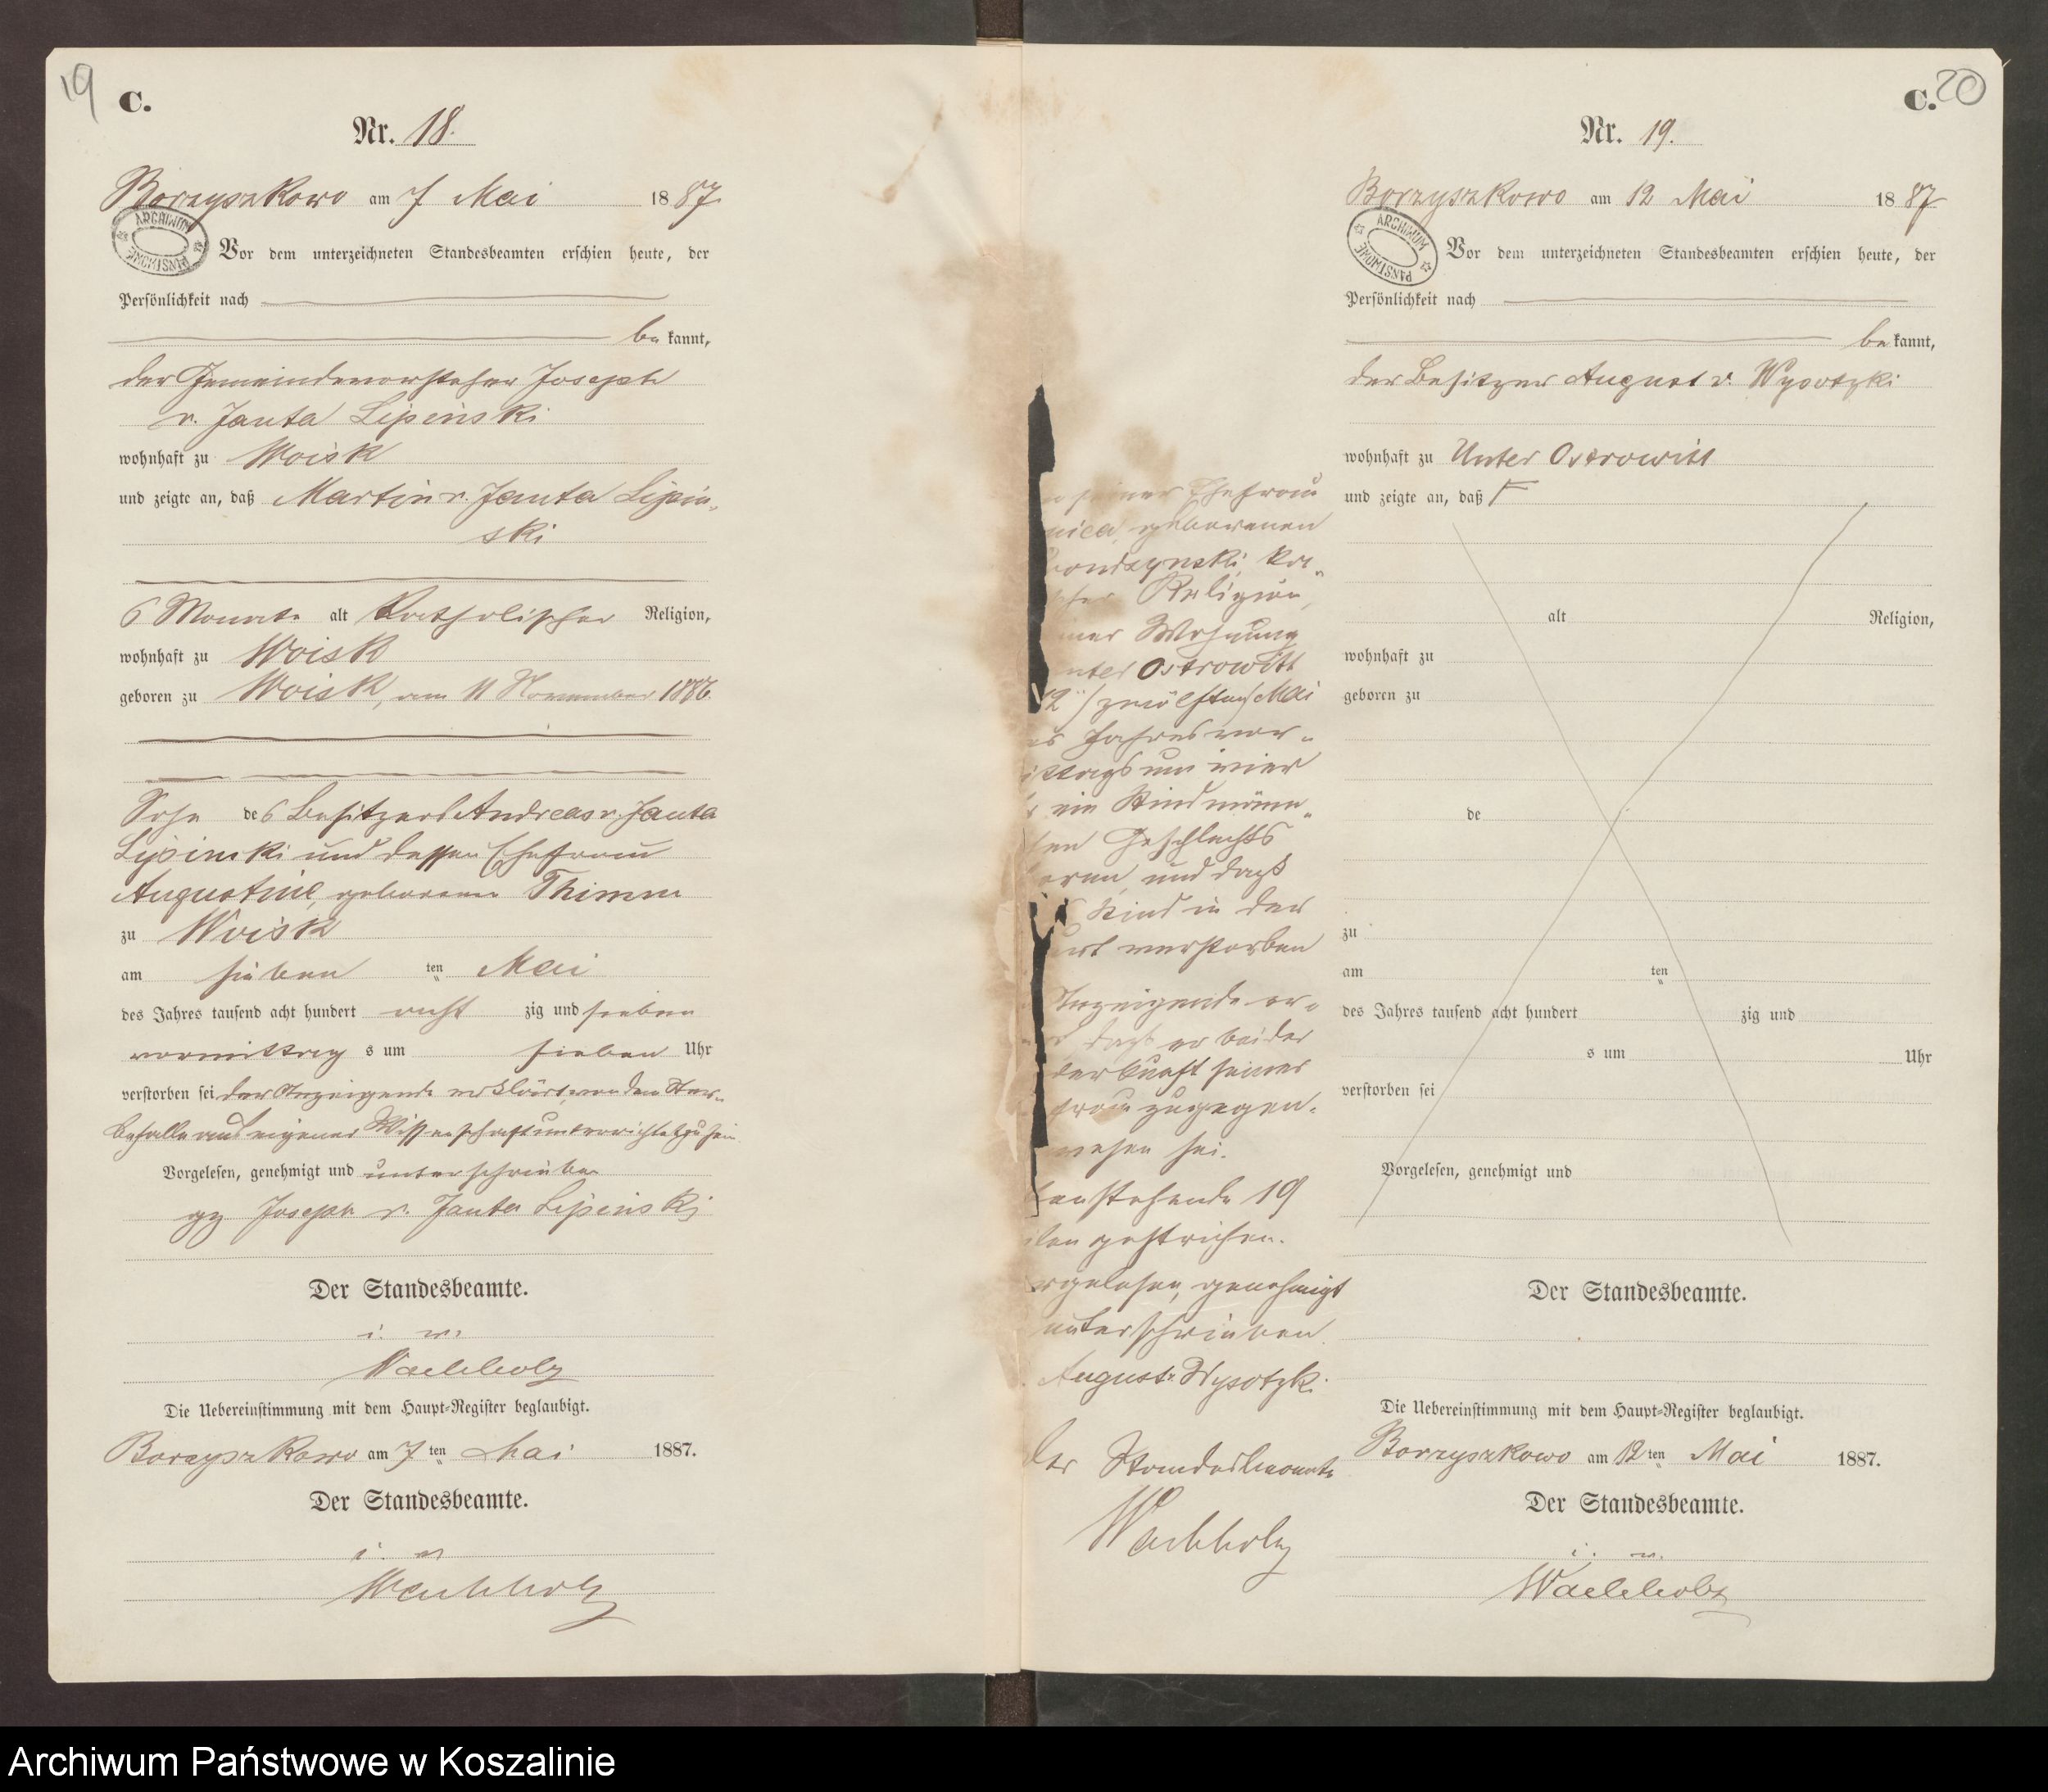 19
C.
Nr. 18.
Borzyszkowo am 7 Mai 1887
ARCHIWUM PAŃSTWOWE
Vor dem unterzeichneten Standesbeamten erschien heute, der
Persönlichkeit nach
be kannt,
der Gemeindevorsteher Joseph
v. Janta Lipinski
wohnhaft zu Woisk
und zeigte an, daß Martin v. Janta Lipin-
ski
6 Monate alt katholischer Religion,
wohnhaft zu Woisk
geboren zu Woisk, am 11 November 1886.
Sohn des Besitzers Andreas v. Janta
Lipinski und dessen Ehefrau
Augustine, geborene Thimm
zu Woisk
am sieben ten Mai
des Jahres tausend acht hundert acht zig und sieben
vormittag s um sieben Uhr
verstorben sei der Anzeigende erklärt, von dem Ster-
befalle aus eigener Wissenschaft unterrichtet zu sein.
Vorgelesen, genehmigt und unterschrieben
gz Joseph v. Janta Lipinski
Der Standesbeamte.
i. v.
Wachholz
Die Uebereinstimmung mit dem Haupt-Register beglaubigt.
Borzyszkowo am 7 ten Mai 1887.
Der Standesbeamte.
i. v.
Wachholz
seiner Ehefrau
geborenen
ka-
Religion,
Wohnung
Ostrowitt
12 / zwölften / Mai
Jahres vor-
um vier
ein Kind männ-
Geschlechts
und daß
Kind in der
verstorben
Anzeigende er-
daß er bei der
seiner
zugegen
sei.
19
gestrichen.
genehmigt
unterschrieben.
August v. Wysotzki
Der Standesbeamte
Wachholz
C. 20
Nr. 19.
Borzyszkowo am 12 Mai 1887
ARCHIWUM PAŃSTWOWE
Vor dem unterzeichneten Standesbeamten erschien heute, der
Persönlichkeit nach
be kannt,
der Besitzer August v. Wysotzki
wohnhaft zu Unter Ostrowitt
und zeigte an, daß
alt Religion,
wohnhaft zu
geboren zu
de
zu
am ten
des Jahres tausend acht hundert zig und
s um Uhr
verstorben sei
Vorgelesen, genehmigt und
Der Standesbeamte.
Die Uebereinstimmung mit dem Haupt-Register beglaubigt.
Borzyszkowo am 12 ten Mai 1887.
Der Standesbeamte.
i. v.
Wachholz
Archiwum Państwowe w Koszalinie